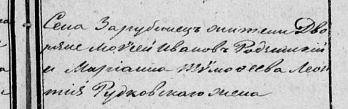 Села Зарубинецъ жители Дво
ряне Моѵсей Ивановъ Родзинскій
и Маріанна Тимофеева Леон
тія Рудковскаго жена